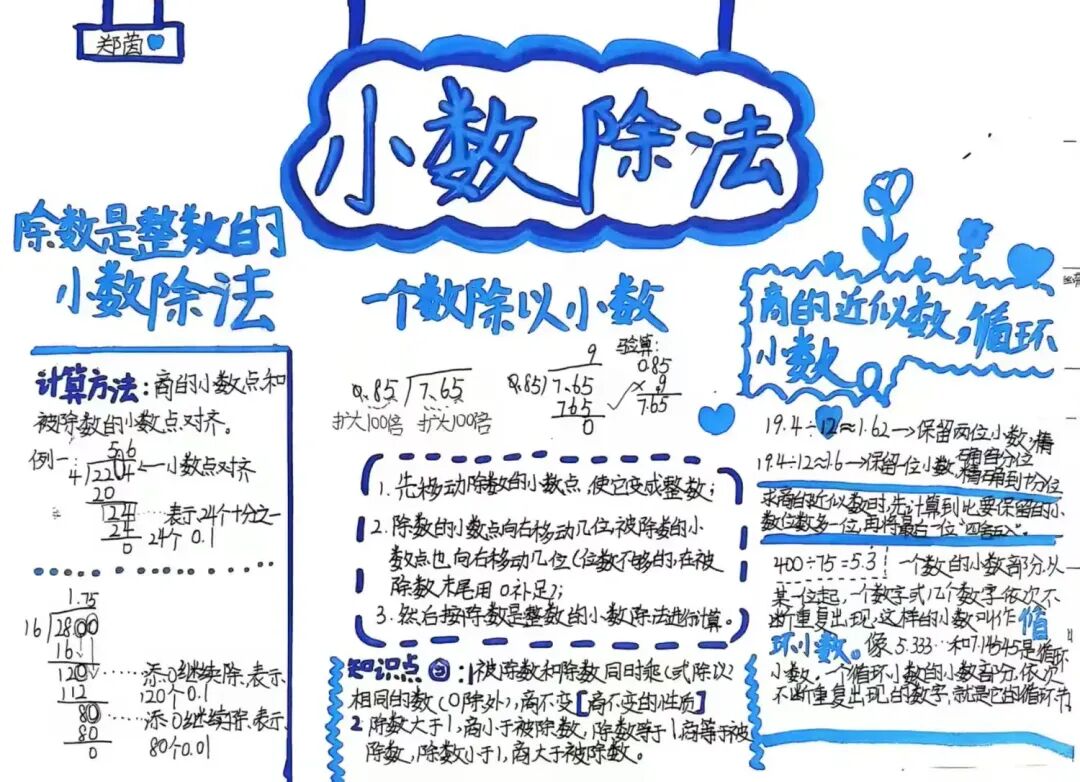 郑茵
小数除法
除数是整数的
小数除法
计算方法：商的小数点和
被除数的小数点对齐。
例一：
5.6
4 22.4 ←小数点对齐
20
24 ……表示24个十分之一
24 24个0.1
0
1.75
16 28.00
16
120 ……添0继续除，表示
112 120个0.1
80 ……添0继续除，表示
80 80个0.01
0
一个数除以小数
0.85 7.65
扩大100倍 扩大100倍
9
0.85 7.65
765
0
验算：
0.85
× 9
7.65
1. 先移动除数的小数点，使它变成整数；
2. 除数的小数点向右移动几位，被除数的小
数点也向右移动几位（位数不够的，在被
除数末尾用0补足）；
3. 然后按除数是整数的小数除法进行计算。
知识点：1被除数和除数同时乘（或除以
相同的数（0除外），商不变[商不变的性质]
2 除数大于1，商小于被除数，除数等于1，商等于被
除数，除数小于1，商大于被除数。
商的近似数，循环
小数
19.4÷12≈1.62→保留两位小数，精
确到百分位
19.4÷12≈1.6→保留一位小数，精确到十分位
求商的近似数时，先计算到比要保留的小
数位数多一位，再将最后一位"四舍五入"。
400÷75=5.3 一个数的小数部分，从
某一位起，一个数字或几个数字依次不
断重复出现，这样的小数叫作循
环小数。像5.333…和7.14545是循环
小数。一个循环小数的小数部分，依次
不断重复出现的数字，就是它的循环节